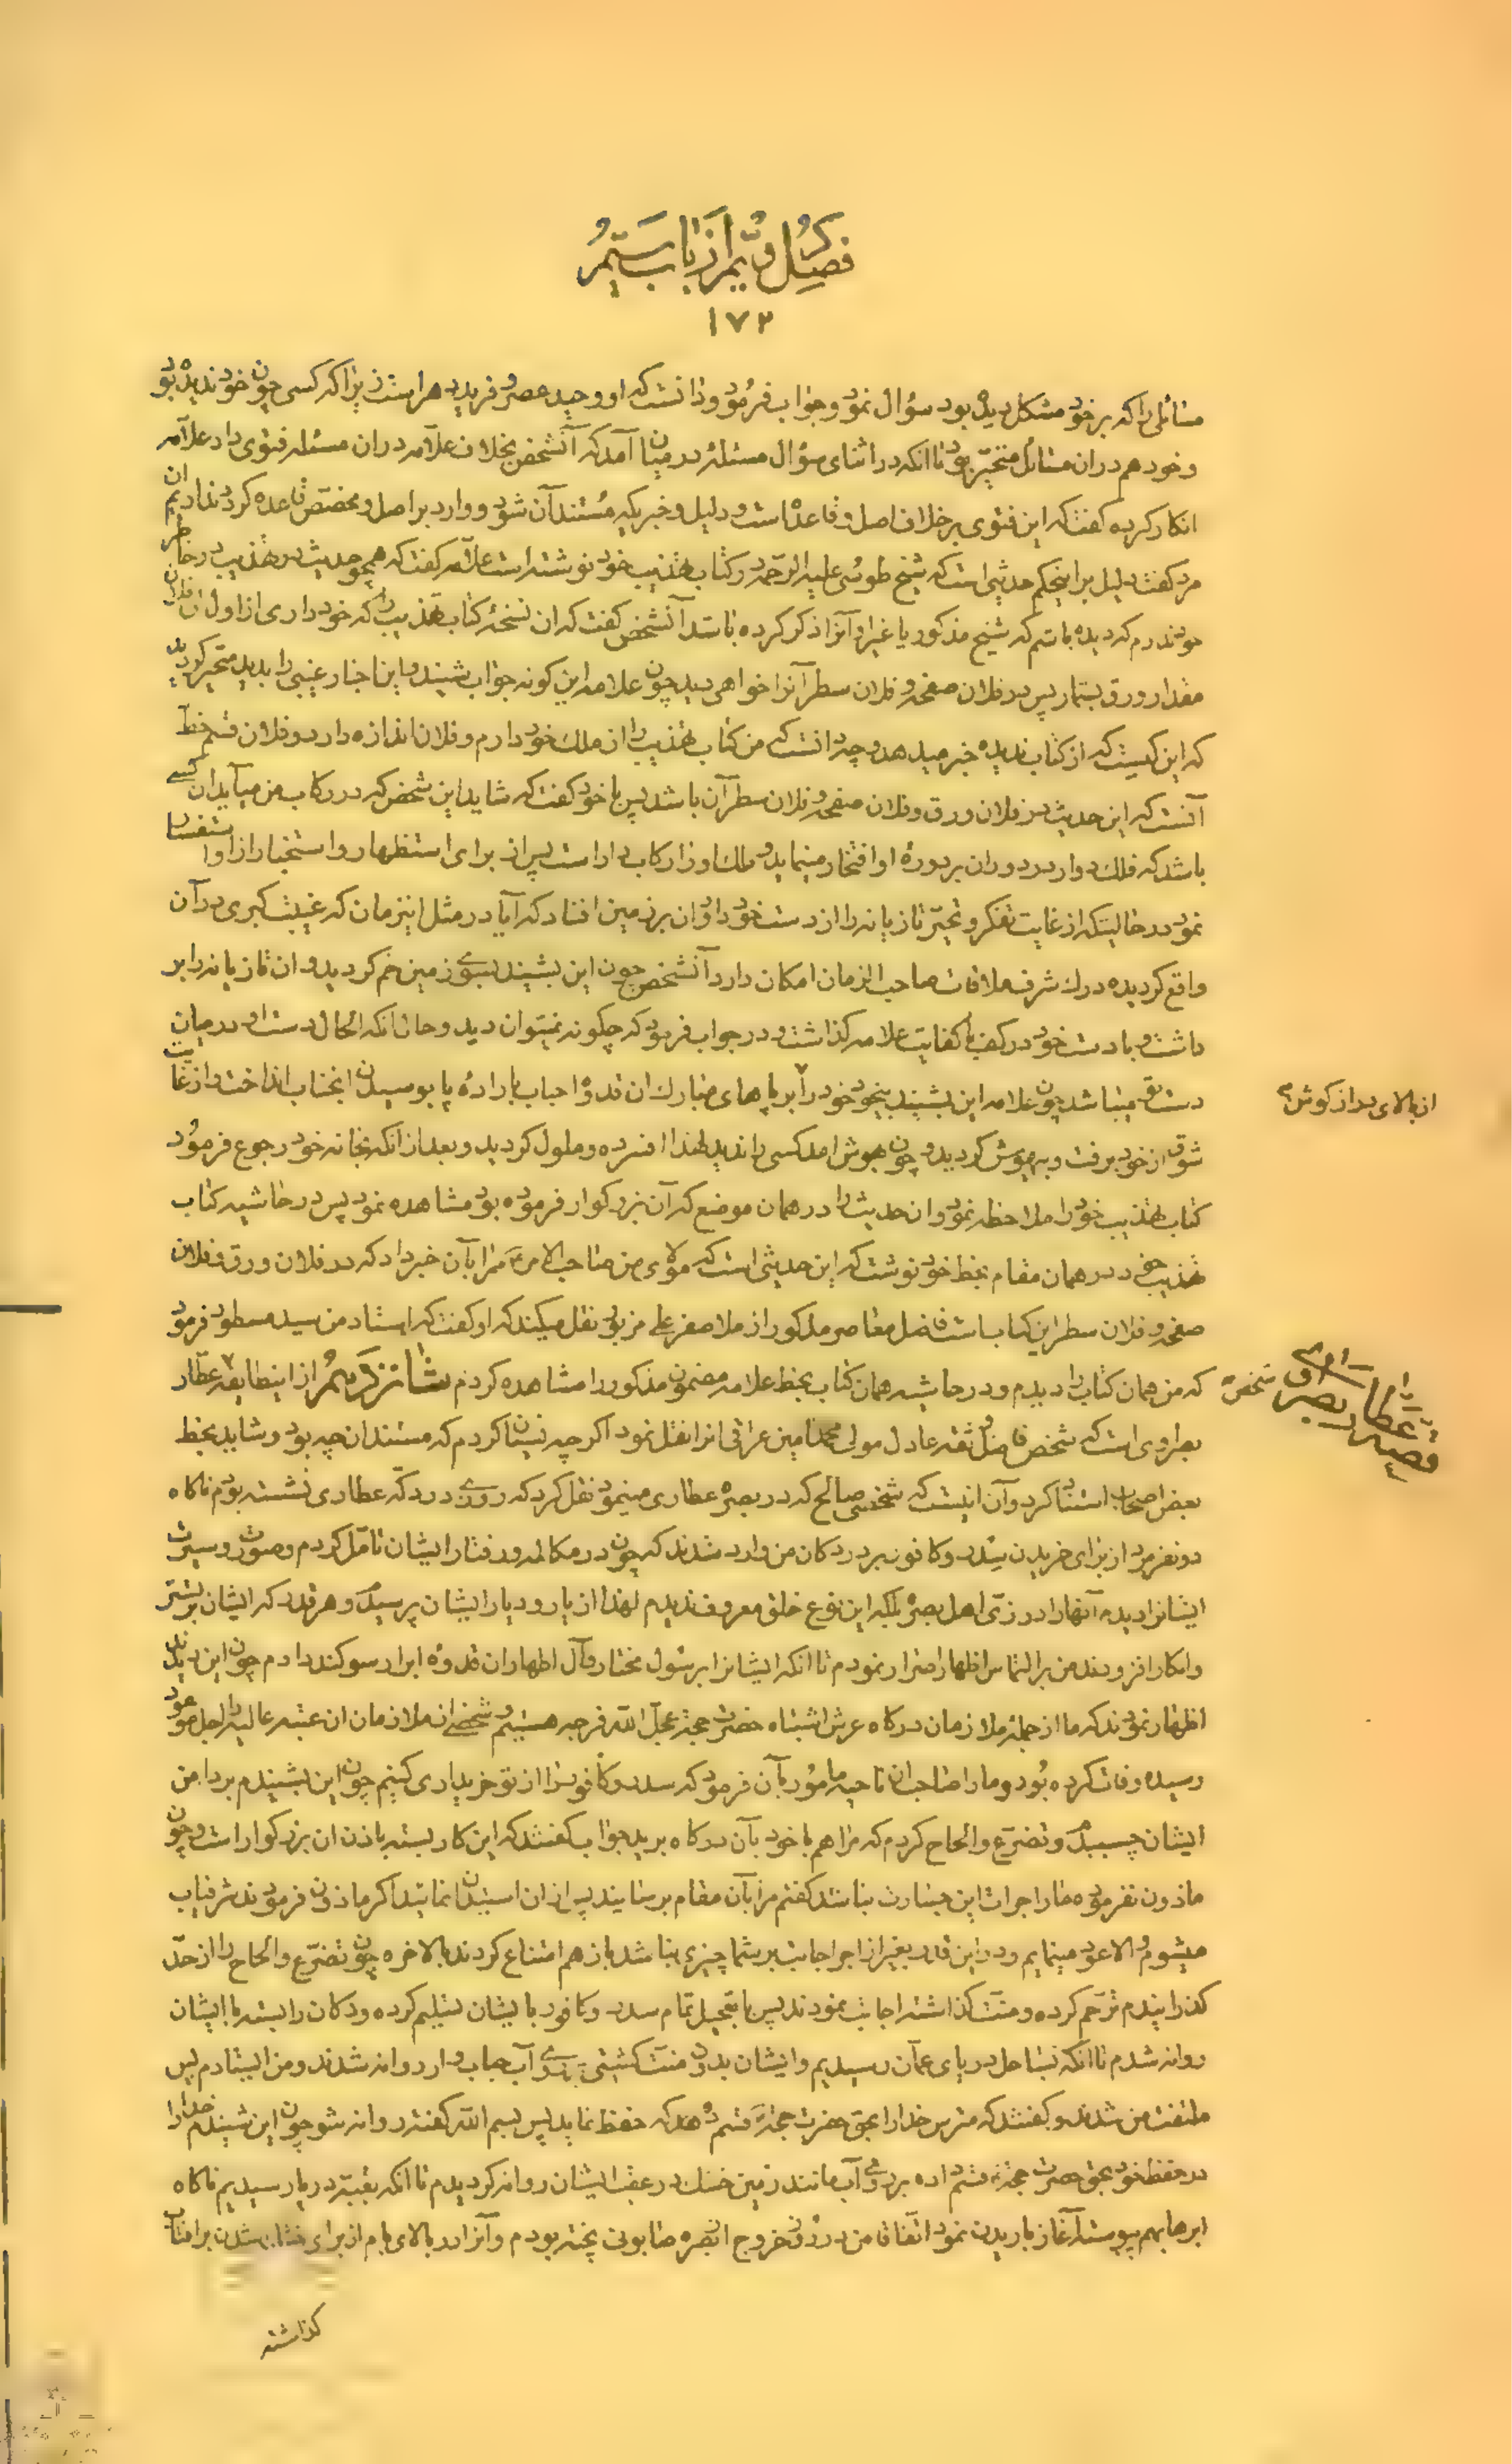 فصل دویم از باب سیم
در ذکر
۱۷۲
مسائلی را که بر خود مشکل دیده بود سؤال نمود و جواب فرمود و دانست که او وحید عصر و فرید دهر است زیرا که کسی چون خود ندیده بود
و خود هم دران مسائل متحیر بود تا انکه در اثنای سؤال مسئلهٔ در میان آمد که آنشخص بخلاف علامه دران مسئله فتوی داد علامه
انکار کرده گفت که این فتوی بر خلاف اصل و قاعده است و دلیل و خبریکه مستند آن شود و وارد بر اصل و مخصص قاعده گردد نداریم ان
مرد گفت دلیل بر اینحکم حدیثی است که شیخ طوسی علیه الرحمه در کتاب تهذیب خود نوشته است علامه گفت که همچو حدیث در تهذیب در خاطر
خود ندارم که دیده باشم که شیخ مذکور یا غیر او آنرا ذکر کرده باشد آنشخص گفت که ان نسخهٔ کتاب تهذیب را که خود داری از اول ان فلان
مقدار ورق بشمار پس در فلان صفحه و فلان سطر آنرا خواهی دید چون علامه این گونه جواب شنید و این اخبار غیبی را بدید متحیر گردید
که این کیست که از کتاب ندیده خبر میدهد و چه دانست که من کتاب تهذیب را از ملک خود دارم و فلان اندازه دارد و فلان قسم خط
آنست که این حدیث در فلان ورق و فلان صفحه و فلان سطر آن باشد پس با خود گفت که شاید این شخص که در رکاب من میآید ان کسی
باشد که فلک دوار در دوران بر دورهٔ او افتخار مینماید و ملک او را رکاب دار است پس از برای استظهار و استخبار از او استفسار
نمود در حالیتکه از غایت تفکر و تحیر تازیانه را از دست خود داد و ان بر زمین افتاد که آیا در مثل اینزمان که غیبت کبری در آن
واقع گردیده درک شرف ملاقات صاحب الزمان امکان دارد آنشخص چون این بشنید بسوی زمین خم گردید و ان تازیانه را بر
داشت و با دست خود در کف با کفایت علامه گذاشت و در جواب فرمود که چگونه نمیتوان دید و حال انکه الحال دست او در میان
دست تو میباشد چون علامه این بشنید بیخود خود را بر پاهای مبارک ان قدوه احباب باراده پا بوسیدن انجناب انداخت و از غایت
از بالای دراز گوش
شوق از خود برفت و بیهوش گردید و چون بهوش امد کسی را ندید لهذا افسرده و ملول گردید و بعد از انکه بخانه خود رجوع فرمود
کتاب تهذیب خود را ملاحظه نمود و ان حدیث را در همان موضع که آن بزرگوار فرموده بود مشاهده نمود پس در حاشیه کتاب
تهذیب خود در همان مقام بخط خود نوشت که این حدیثی است که مولای من صاحب الامر مرا بآن خبر داد که در فلان ورق و فلان
صفحه و فلان سطر این کتاب است فاضل معاصر مذکور از ملا صفر علی مزبور نقل میکند که او گفت که استاد من سید مسطور فرمود
که من همان کتاب را دیدم و در حاشیه همان کتاب بخط علامه مضمون مذکور را مشاهده کردم شانزدهم از اینطایفه عطار
شخص
قصه عطار بصری
بصراوی است که شخص فاضل ثقه عادل مولی محمد امین عراقی انرا نقل نمود اگر چه نسیان کردم که مستند ان چه بود و شاید بخط
بعض اصحاب استناد کرد و آن اینست که شخصی صالح که در بصره عطاری مینمود نقل کرد که روزی در دکه عطاری نشسته بودم ناگاه
دو نفر مرد از برای خریدن سدر و کافور بر در دکان من وارد شدند که چون در مکالمه و رفتار ایشان تامل کردم و صورت و سیرت
ایشانرا دیده آنها را در زی اهل بصره بلکه این نوع خلق معروف ندیدم لهذا از یار و دیار ایشان پرسیدم و هر قدر که ایشان بر ستر
و انکار افزودند من بر التماس اظهار اصرار نمودم تا انکه ایشانرا برسول مختار و آل اطهار ان قدوه ابرار سوگند دادم چون این دیدند
اظهار نمودند که ما از جمله ملازمان درگاه عرش اشتباه حضرت حجت عجل الله فرجه هستیم و شخصی از ملازمان ان عتبه عالیه را اجل موعود
رسیده وفات کرده بود و ما را صاحب ان ناحیه مامور بآن فرموده که سدر و کافور را از تو خریداری کنیم چون این بشنیدم بر دامن
ایشان چسبیدم و تضرع و الحاح کردم که مرا هم با خود بآن درگاه برید جواب گفتند که این کار بسته باذن ان بزرگوار است و چون
ماذون نفرموده ما را جرات این جسارت نباشد گفتم مرا بآن مقام برسانید پس از ان استیذان نمائید اگر ماذون فرمودند شرفیاب
میشوم و الا عود مینمایم و در این قدر بغیر از اجر اجابت بر شما چیزی نباشد باز هم امتناع کردند بالاخره چون تضرع و الحاح را از حد
گذرانیدم ترحم کرده و منت گذاشته اجابت نمودند پس با تعجیل تمام سدر و کافور بایشان تسلیم کرده و دکان را بسته با ایشان
روانه شدم تا انکه بساحل دریای عمان رسیدیم و ایشان بدون منت کشتی بر روی آب حباب وار روانه شدند و من ایستادم پس
ملتفت من شدند و گفتند که مترس خدا را بحق حضرت حجت قسم ده که حفظ نماید پس بسم الله گفته روانه شو چون این شنیدم خدا را
در حفظ خود بحق حضرت حجت قسم داده بر روی آب مانند زمین خشک در عقب ایشان روانه گردیدم تا انکه بقبه دریا رسیدیم ناگاه
ابرها بهم پیوسته آغاز باریدن نمود اتفاقا من در روز خروج از بصره صابونی پخته بودم و آنرا در بالای بام از برای خشک شدن بر آفتاب
گذاشته